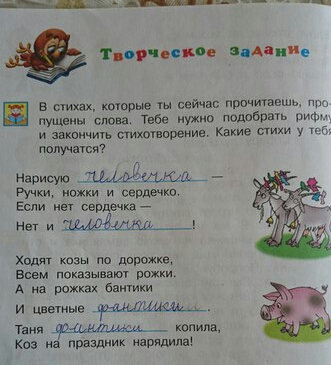 Творческое задание
В стихах, которые ты сейчас прочитаешь, про-
пущены слова. Тебе нужно подобрать рифму
и закончить стихотворение. Какие стихи у тебя
получатся?
Нарисую человечка —
Ручки, ножки и сердечко.
Если нет сердечка —
Нет и человечка !
Ходят козы по дорожке,
Всем показывают рожки.
А на рожках бантики
И цветные фантики.
Таня фантики копила,
Коз на праздник нарядила!